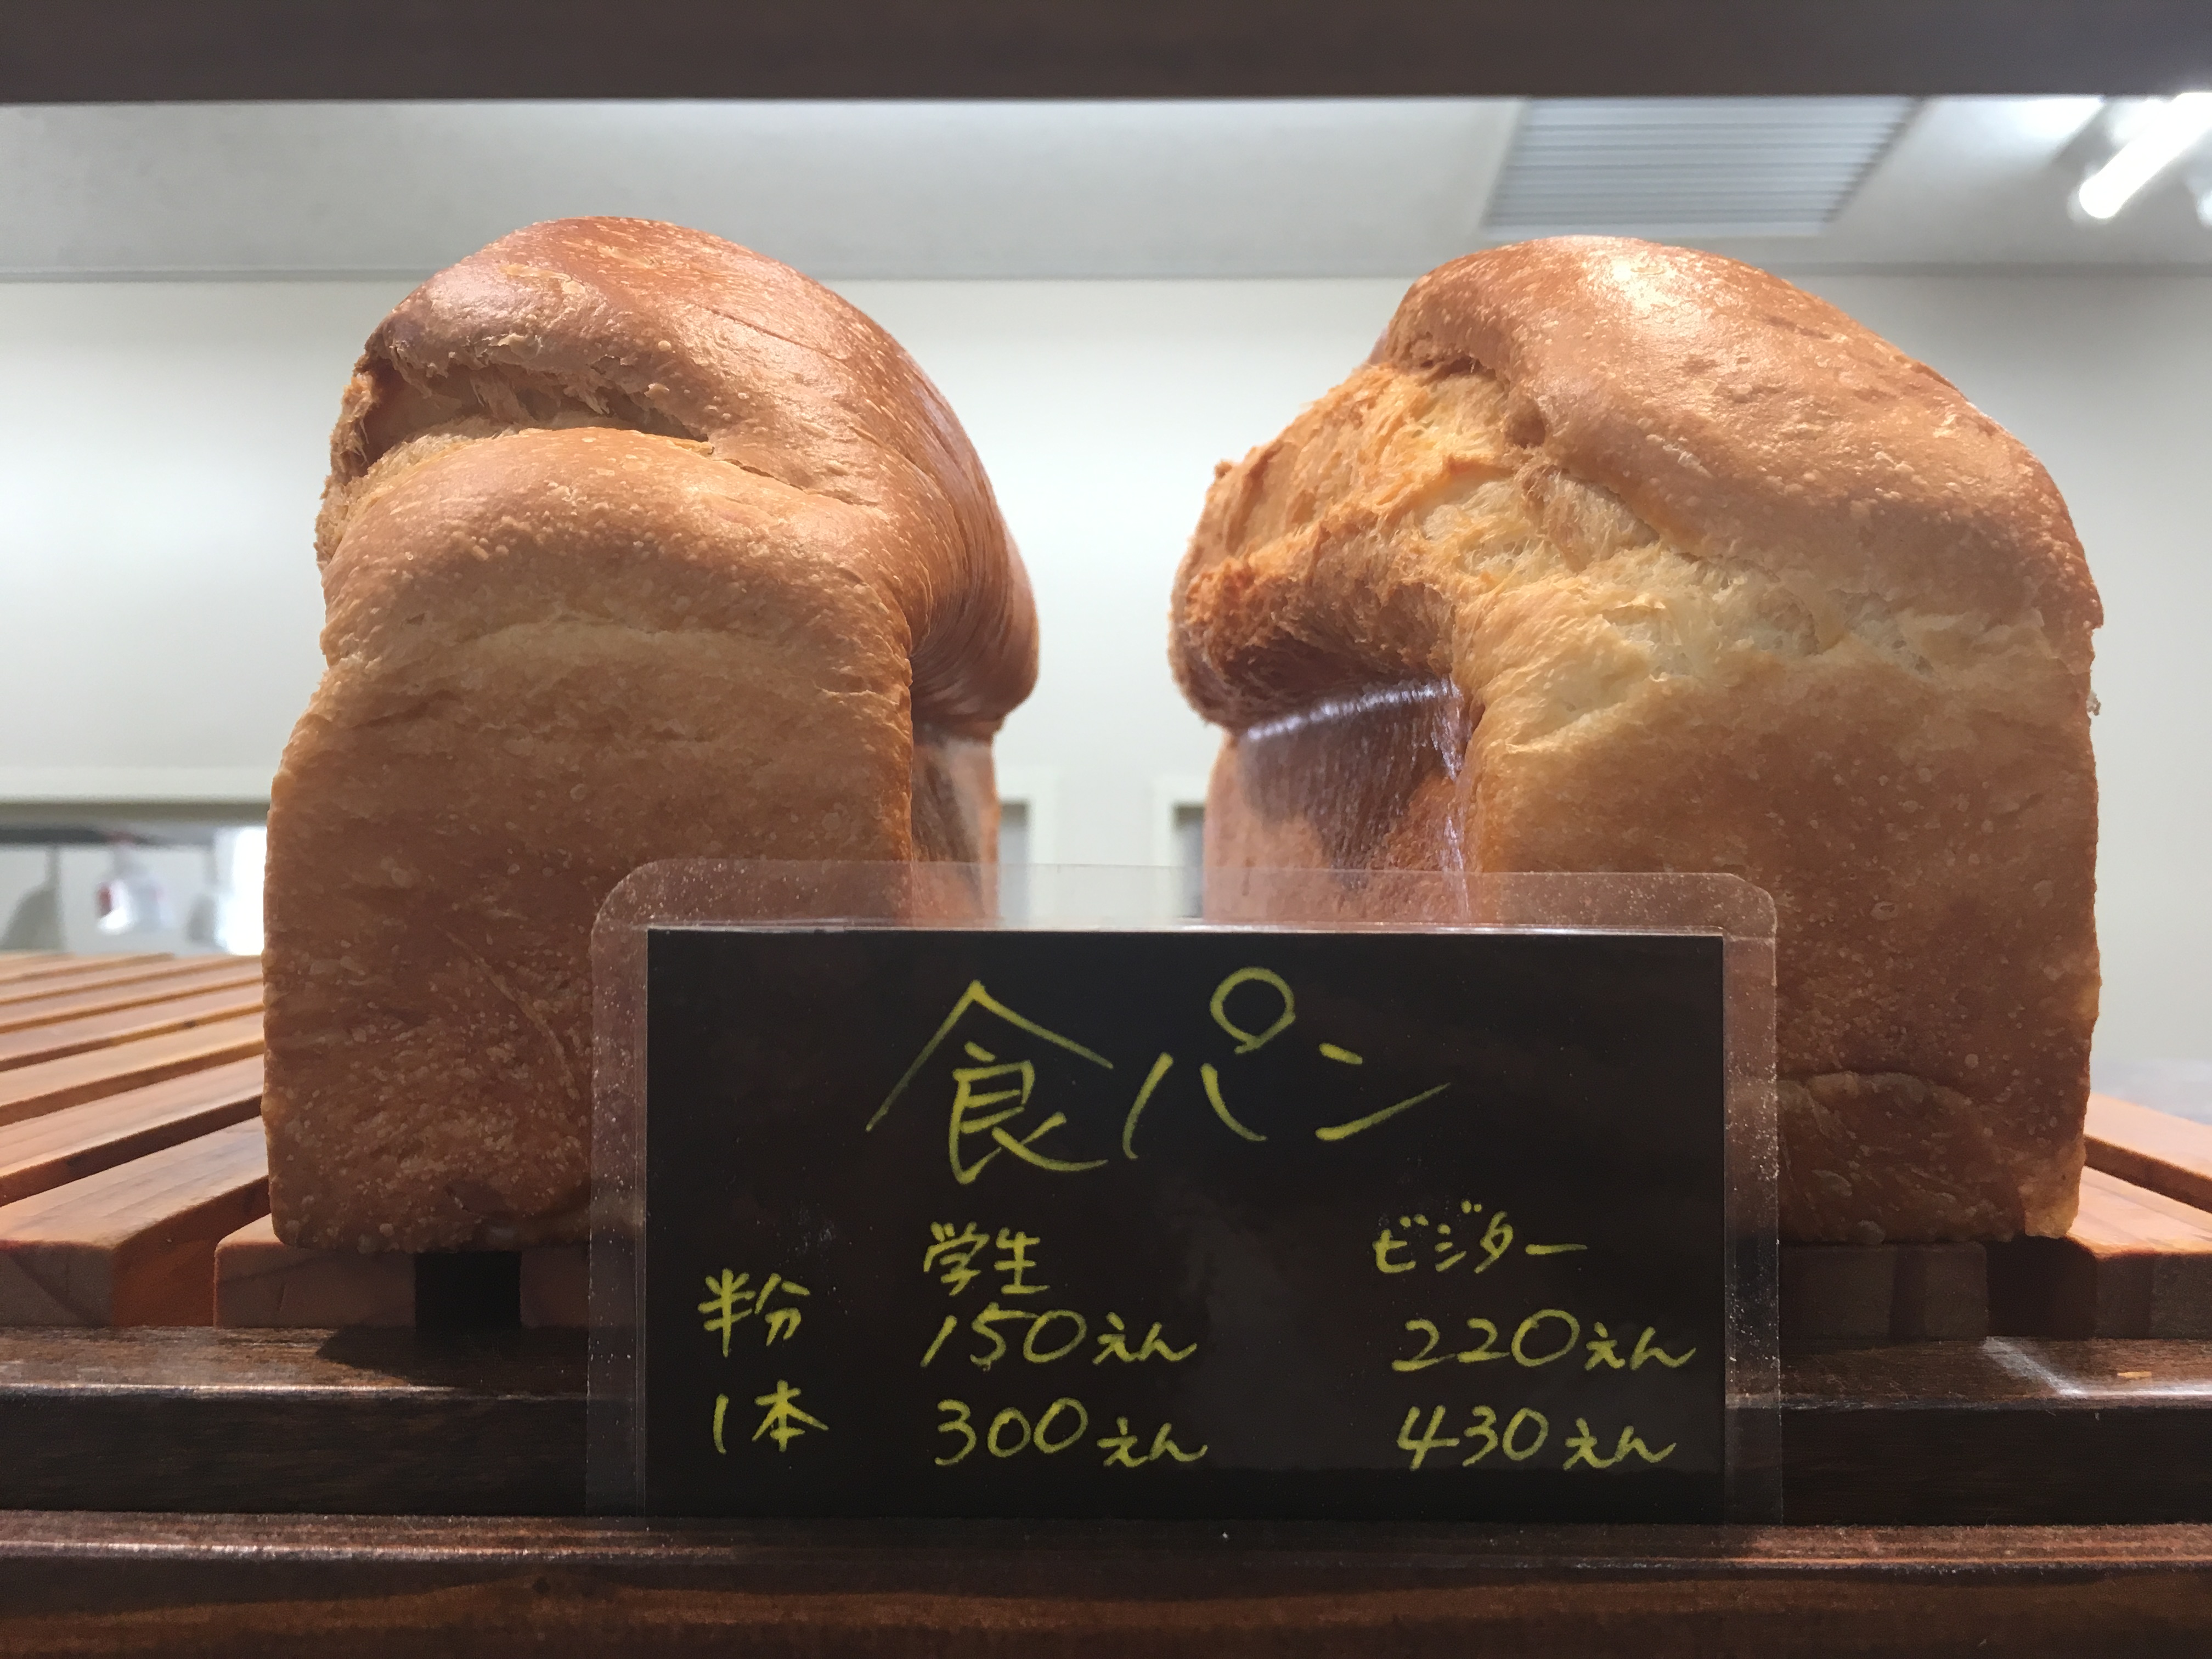 食パン
学生 ビジター
半分 150えん 220えん
1本 300えん 430えん